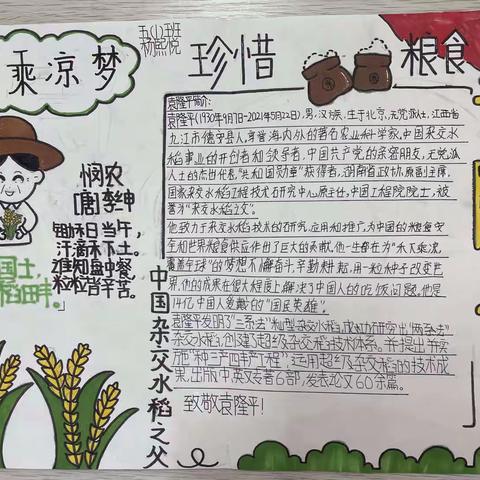 五(1)班
杨熙悦
乘凉梦
珍惜
粮食
悯农
[唐]李绅
锄禾日当午,
汗滴禾下土。
谁知盘中餐,
粒粒皆辛苦。
国士,
稻田丰。
中国杂交水稻之父
袁隆平简介:
袁隆平(1930年9月7日-2021年5月22日),男,汉族,生于北京,无党派人士,江西省
九江市德安县人,享誉海内外的著名农业科学家,中国杂交水
稻事业的开创者和领导者,中国共产党的亲密朋友,无党派
人士的杰出代表,"共和国勋章"获得者,湖南省政协原副主席,
国家杂交水稻工程技术研究中心原主任,中国工程院院士,被
誉为"杂交水稻之父"。
他致力于杂交水稻技术的研究,应用和推广,为中国的粮食安
全和世界粮食供应作出了巨大的贡献。他一生都在为"禾下乘凉,
覆盖全球"的梦想不懈奋斗,辛勤耕耘,用一粒种子改变世
界,他的成果在很大程度上解决了中国人的吃饭问题,他是
14亿中国人爱戴的"国民英雄"。
袁隆平发明了"三系法"籼型杂交水稻,成功研究出"两系法"
杂交水稻,创建了超级杂交稻技术体系。并提出并实
施"种三产四丰产工程",运用超级杂交稻的技术成
果,出版中、英文专著6部,发表论文60余篇。
致敬袁隆平!